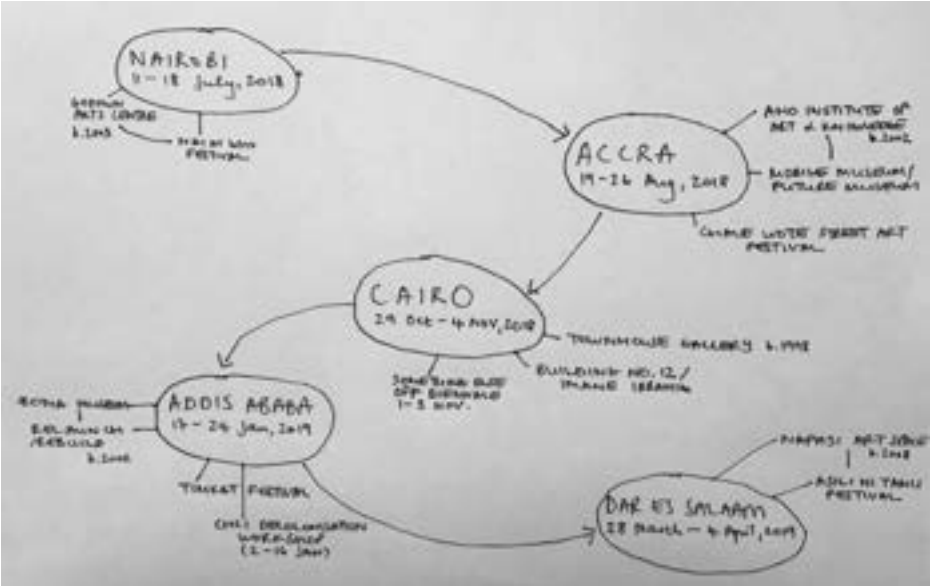 NAIROBI
11-18 July, 2018
ARTS CENTRE
FESTIVAL
ACCRA
19-26 Aug, 2018
ANO INSTITUTE OF
ART & KNOWLEDGE
b.2002
MOBILE MUSEUM/
FUTURE MUSEUM
CHALE WOTE STREET ART
FESTIVAL
CAIRO
29 Oct - 4 NOV, 2018
TOWNHOUSE GALLERY b.1998
BUILDING NO.12/
SOMETHING ELSE
OFF BIENNALE
1-3 NOV.
ADDIS ABABA
17-24 Jan, 2019
RELAUNCH
/REBUILD
TIMKET FESTIVAL
DECOLONISATION
WORKSHOP
DAR ES SALAAM
28 March - 4 April, 2019
NAFASI ART SPACE
b.2008
ASILI NI TAMU
FESTIVAL